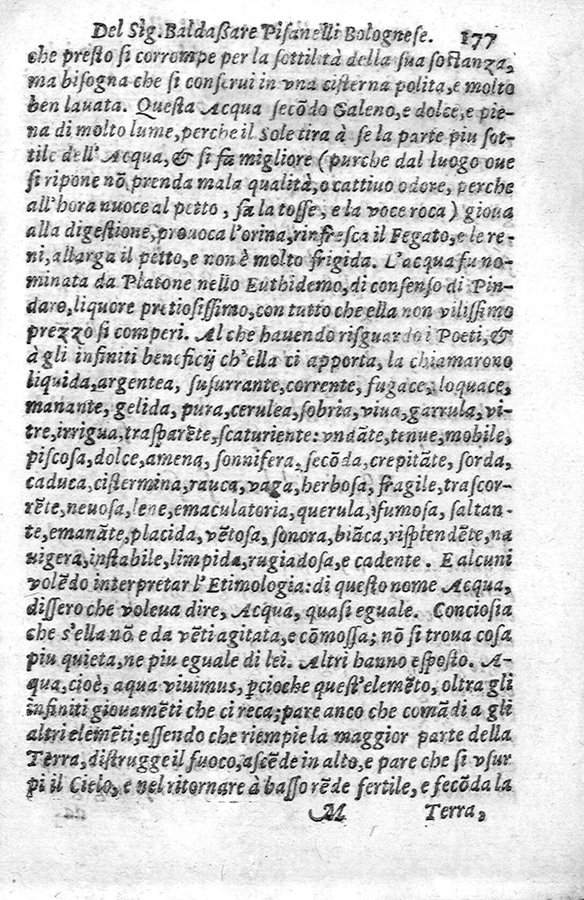 Del Sig. Baldaßare Pisanelli Bolognese. 177
che presto si corrompe per la sottilità della sua sostanza,
ma bisogna che si conserui in vna cisterna polita, e molto
ben lauata. Questa Acqua secōdo Galeno, e dolce, e pie-
na di molto lume, perche il Sole tira à se la parte piu sot-
tile dell'Acqua, & si fa migliore (purche dal luogo oue
si ripone nō prenda mala qualità, o cattiuo odore, perche
all'hora nuoce al petto, fa la tosse, e la voce roca) gioua
alla digestione, prouoca l'orina, rinfresca il Fegato, e le re-
ni, allarga il petto, e non è molto frigida. L'acqua fu no-
minata da Platone nello Euthidemo, di consenso di Pin-
daro, liquore pretiosissimo, con tutto che ella non vilissimo
prezzo si comperi. Al che hauendo risguardo i Poeti, &
à gli infiniti beneficij ch'ella ci apporta, la chiamarono
liquida, argentea, susurrante, corrente, fugace, loquace,
manante, gelida, pura, cerulea, sobria, viua, garrula, vi-
tre, irrigua, trasparēte, scaturiente: vndāte, tenue, mobile,
piscosa, dolce, amena, sonnifera, secōda, crepitāte, sorda,
caduca, cistermina, rauca, vaga, herbosa, fragile, trascor-
rēte, neuosa, lene, emaculatoria, querula, fumosa, saltan-
te, emanāte, placida, vētosa, sonora, biāca, risplendēte, na
uigera, instabile, limpida, rugiadosa, e cadente. E alcuni
volēdo interpretar l'Etimologia: di questo nome Acqua,
dissero che voleua dire, Acqua, quasi eguale. Conciosia
che s'ella nō e da vēti agitata, e cōmossa; nō si troua cosa
piu quieta, ne piu eguale di lei. Altri hanno esposto. A-
qua, cioè, aqua viuimus, pcioche quest'elemēto, oltra gli
infiniti giouamēti che ci reca; pare anco che comādi a gli
altri elemēti; essendo che riempie la maggior parte della
Terra, distrugge il fuoco, ascēde in alto, e pare che si vsur
pi il Cielo, e nel ritornare à basso rēde fertile, e fecōda la
M Terra,